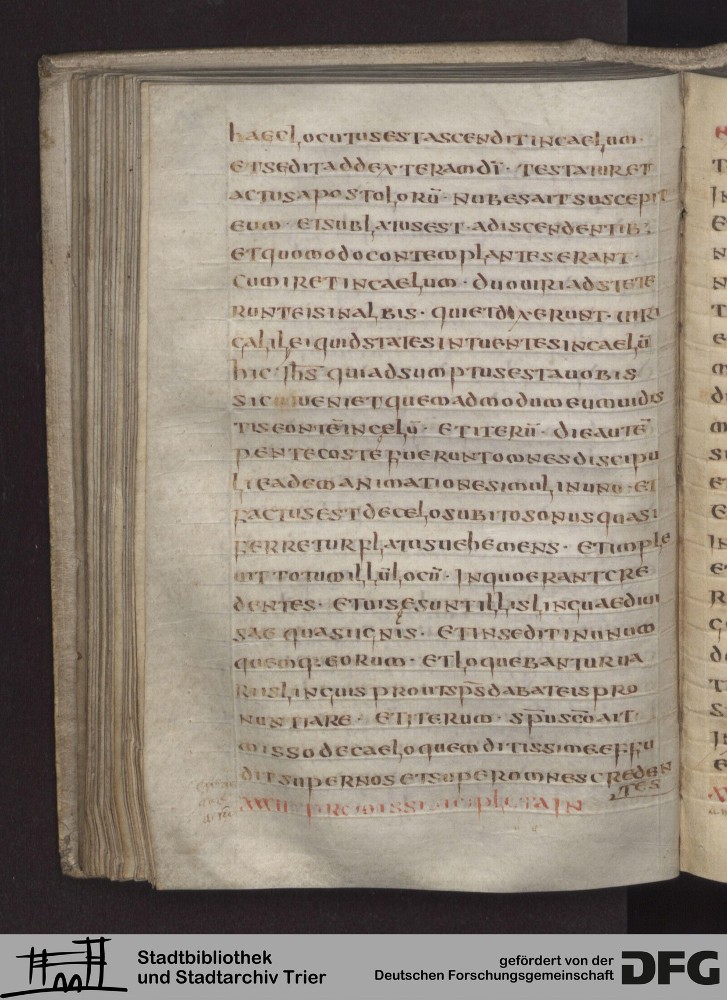 haeclocutusestascenditincaelum·
etseditaddexteramdī· testatur et
actusapostolorū· nubesaitsuscepit
eum· etsublatusest·adiscendentib;
etquomodocontemplanteserant·
cumiretincaelum· duouiriadstete
runteisinalbis· quietdixerunt· uiri
galileiquidstatesintuentesincaelū
hic· ihs̄ quiadsumptusestauobis
sic ueniet quemadmodumeumuidis
tiseuntēincęlū· etiterū· dieautē
pentecostēfueruntomnesdiscipu
lieademanimationesimulinuno· et
factusestdecelosubitosonusquasi
ferreturflatusuehemens· etimple
uit totumillūlocū· inquoerantcre
dentes· etuisęsuntillislinguaediui
sae quasiignis· etinseditinunum
quemq· eorum· etloquebanturua
riislinguisproutsp̄sdabateispro
nuntiare· etiterum· sp̄uscōait·
missodecaeloquemditissimeeffu
ditsupernosetsuperomnescreden
tes
promissi· 
Stadtbibliothek
und Stadtarchiv Trier
gefördert von der
Deutschen Forschungsgemeinschaft
DFG